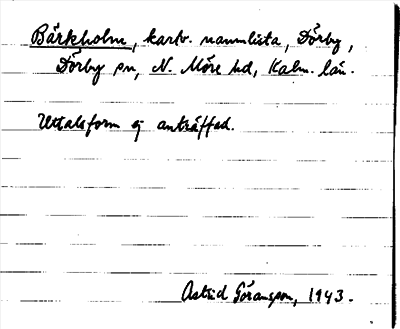 Bärkholm, kartv. namnlista, Dörby,
Dörby sn, N. Möre hd, Kalm. län.
Uttalsform ej anträffad.
Astrid Göransson, 1943.